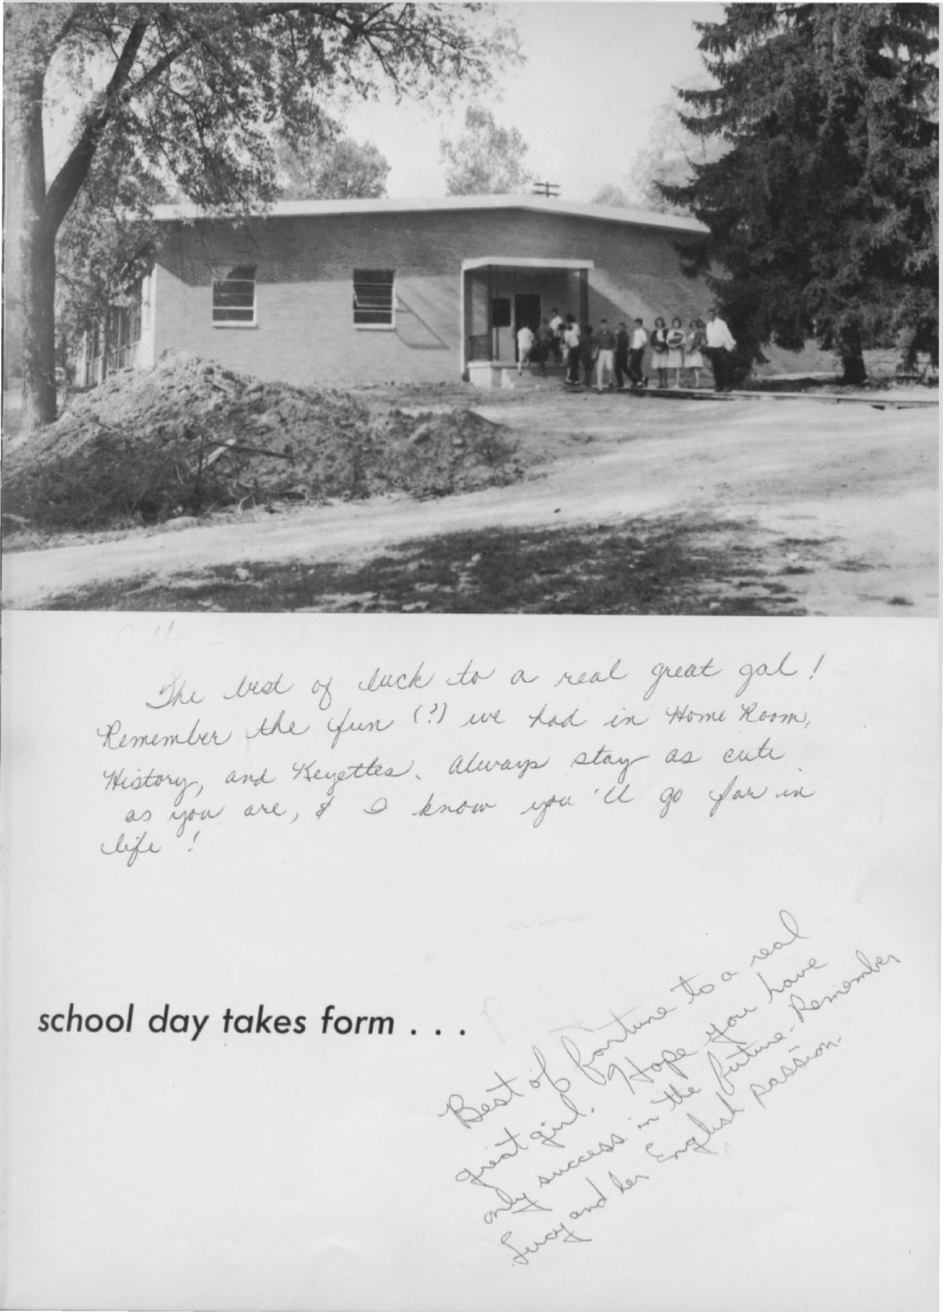 The best of luck to a real great gal!
Remember the fun (?) we had in Home Room,
History, and Keyettes. Always stay as cute
as you are, & I know you'll go far in
life!
school day takes form . . .
Best of fortune to a real
great girl. Hope you have
only success in the future - Remember
and her English passion.